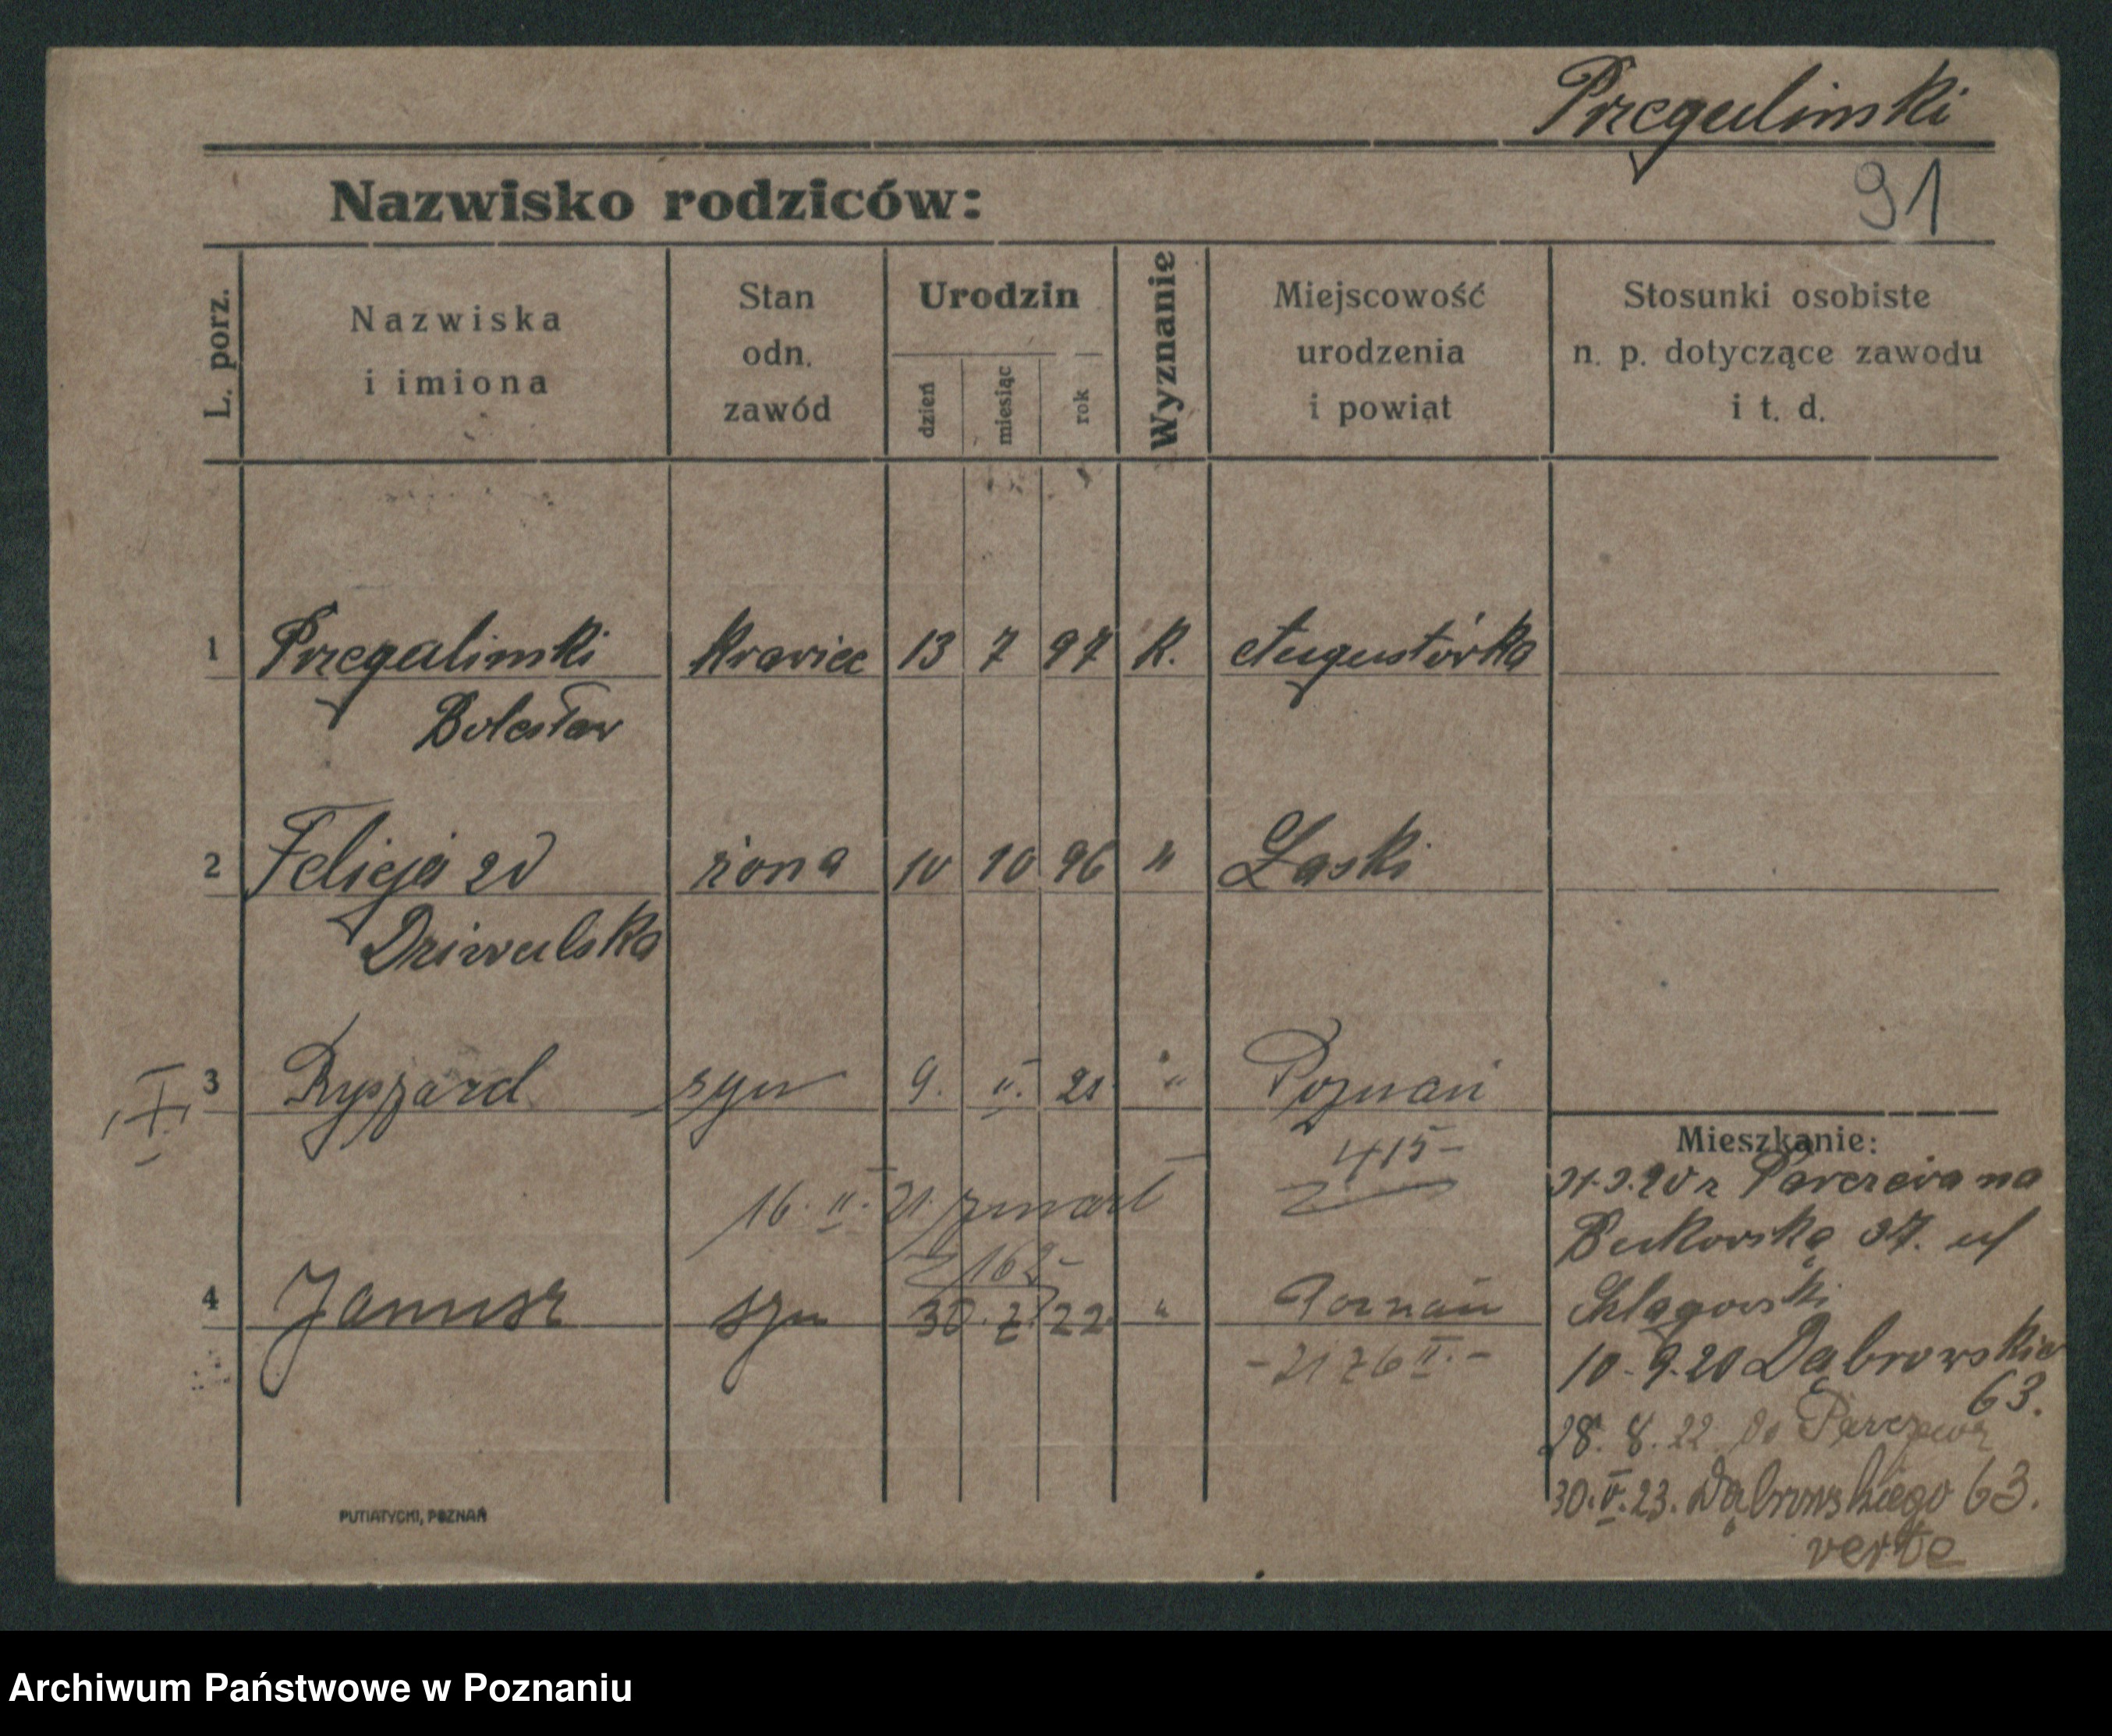 Przegalinski
91
Nazwisko rodziców:
L. porz.
Nazwiska
i imiona
Stan
odn.
zawód
Urodzin
dzień
miesiąc
rok
Wyznanie
Miejscowość
urodzenia
i powiat
Stosunki osobiste
n. p. dotyczące zawodu
i t. d.
1 Przegalinski krawiec 13 7 97 K. Augustówka
Bolesław
2 Felicja zd żona 10 10 96 " Łaski
Dziwulska
3 Ryszard syn 9. II. 21 " Poznań
415-
16. II. 21. zmarł
162-
4 Janusz syn 30. 7. 22. " Poznań
- 2176 II. -
Mieszkanie:
31.3.20 z Parczewa na
Bukowską 37. u/
10. 9. 20 Dąbrowskie
63.
28. 8. 22 do Parczewa
30. V. 23. Dąbrowskiego 63.
verte
PUTIATYCKI, POZNAŃ
Archiwum Państwowe w Poznaniu